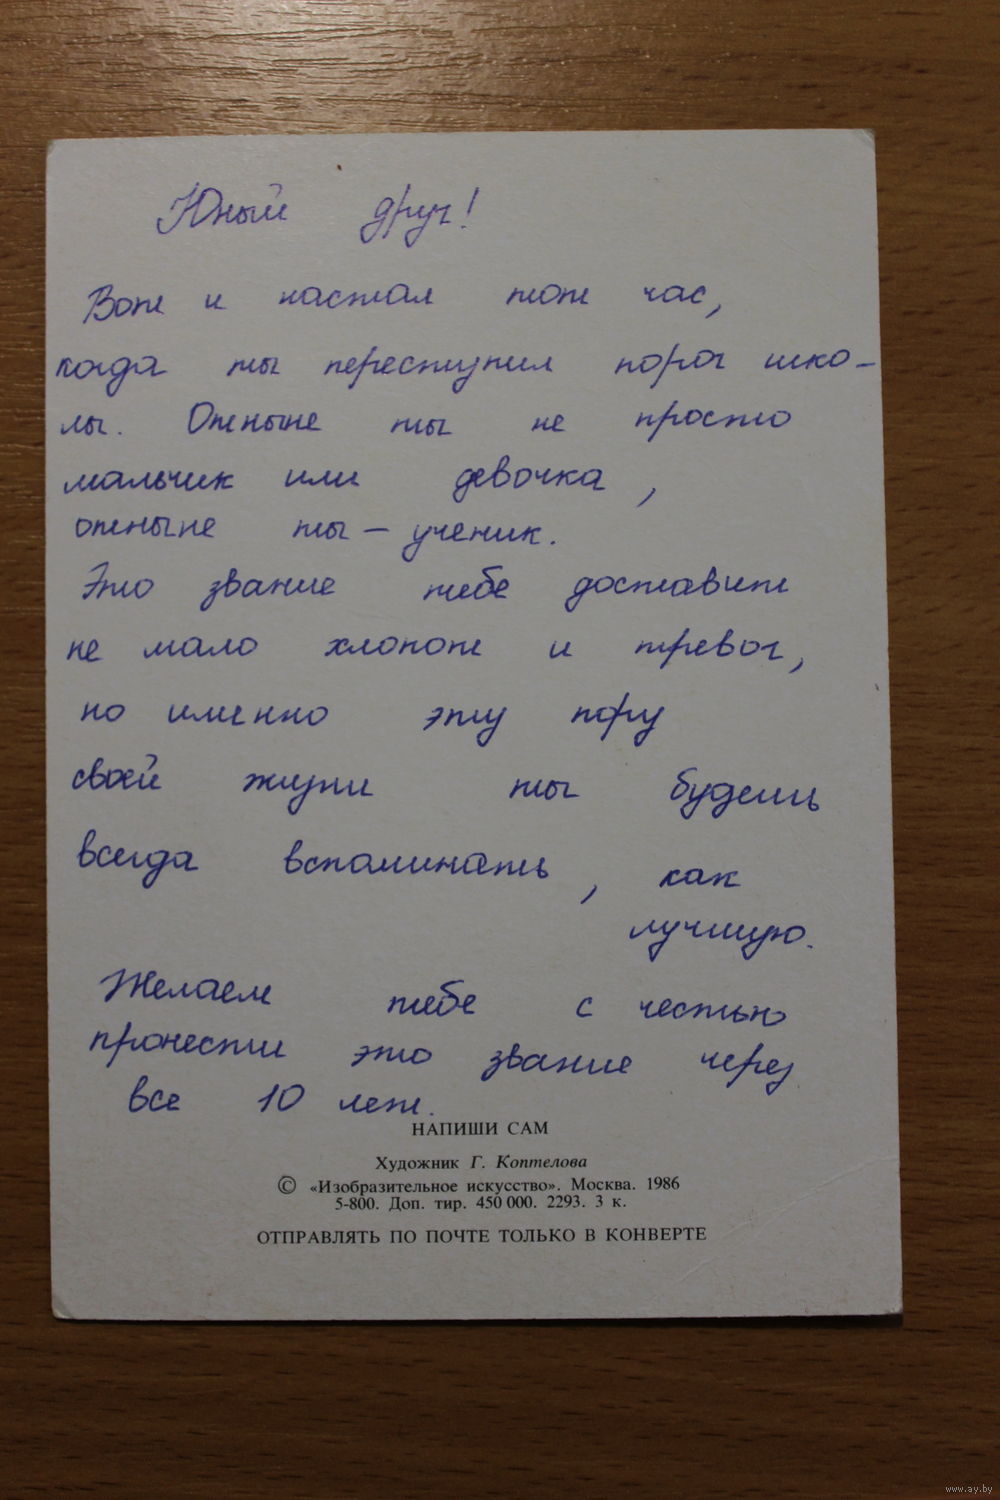 Юный друг!
Вот и настал тот час,
когда ты переступил порог шко-
лы. Отныне ты не просто
мальчик или девочка,
отныне ты – ученик.
Это звание тебе доставит
не мало хлопот и тревог,
но именно эту пору
своей жизни ты будешь
всегда вспоминать, как
лучшую.
Желаем тебе с честью
пронести это звание через
все 10 лет.
НАПИШИ САМ
Художник Г. Коптелова
© «Изобразительное искусство». Москва. 1986
5-800. Доп. тир. 450 000. 2293. 3 к.
ОТПРАВЛЯТЬ ПО ПОЧТЕ ТОЛЬКО В КОНВЕРТЕ
www.ay.by